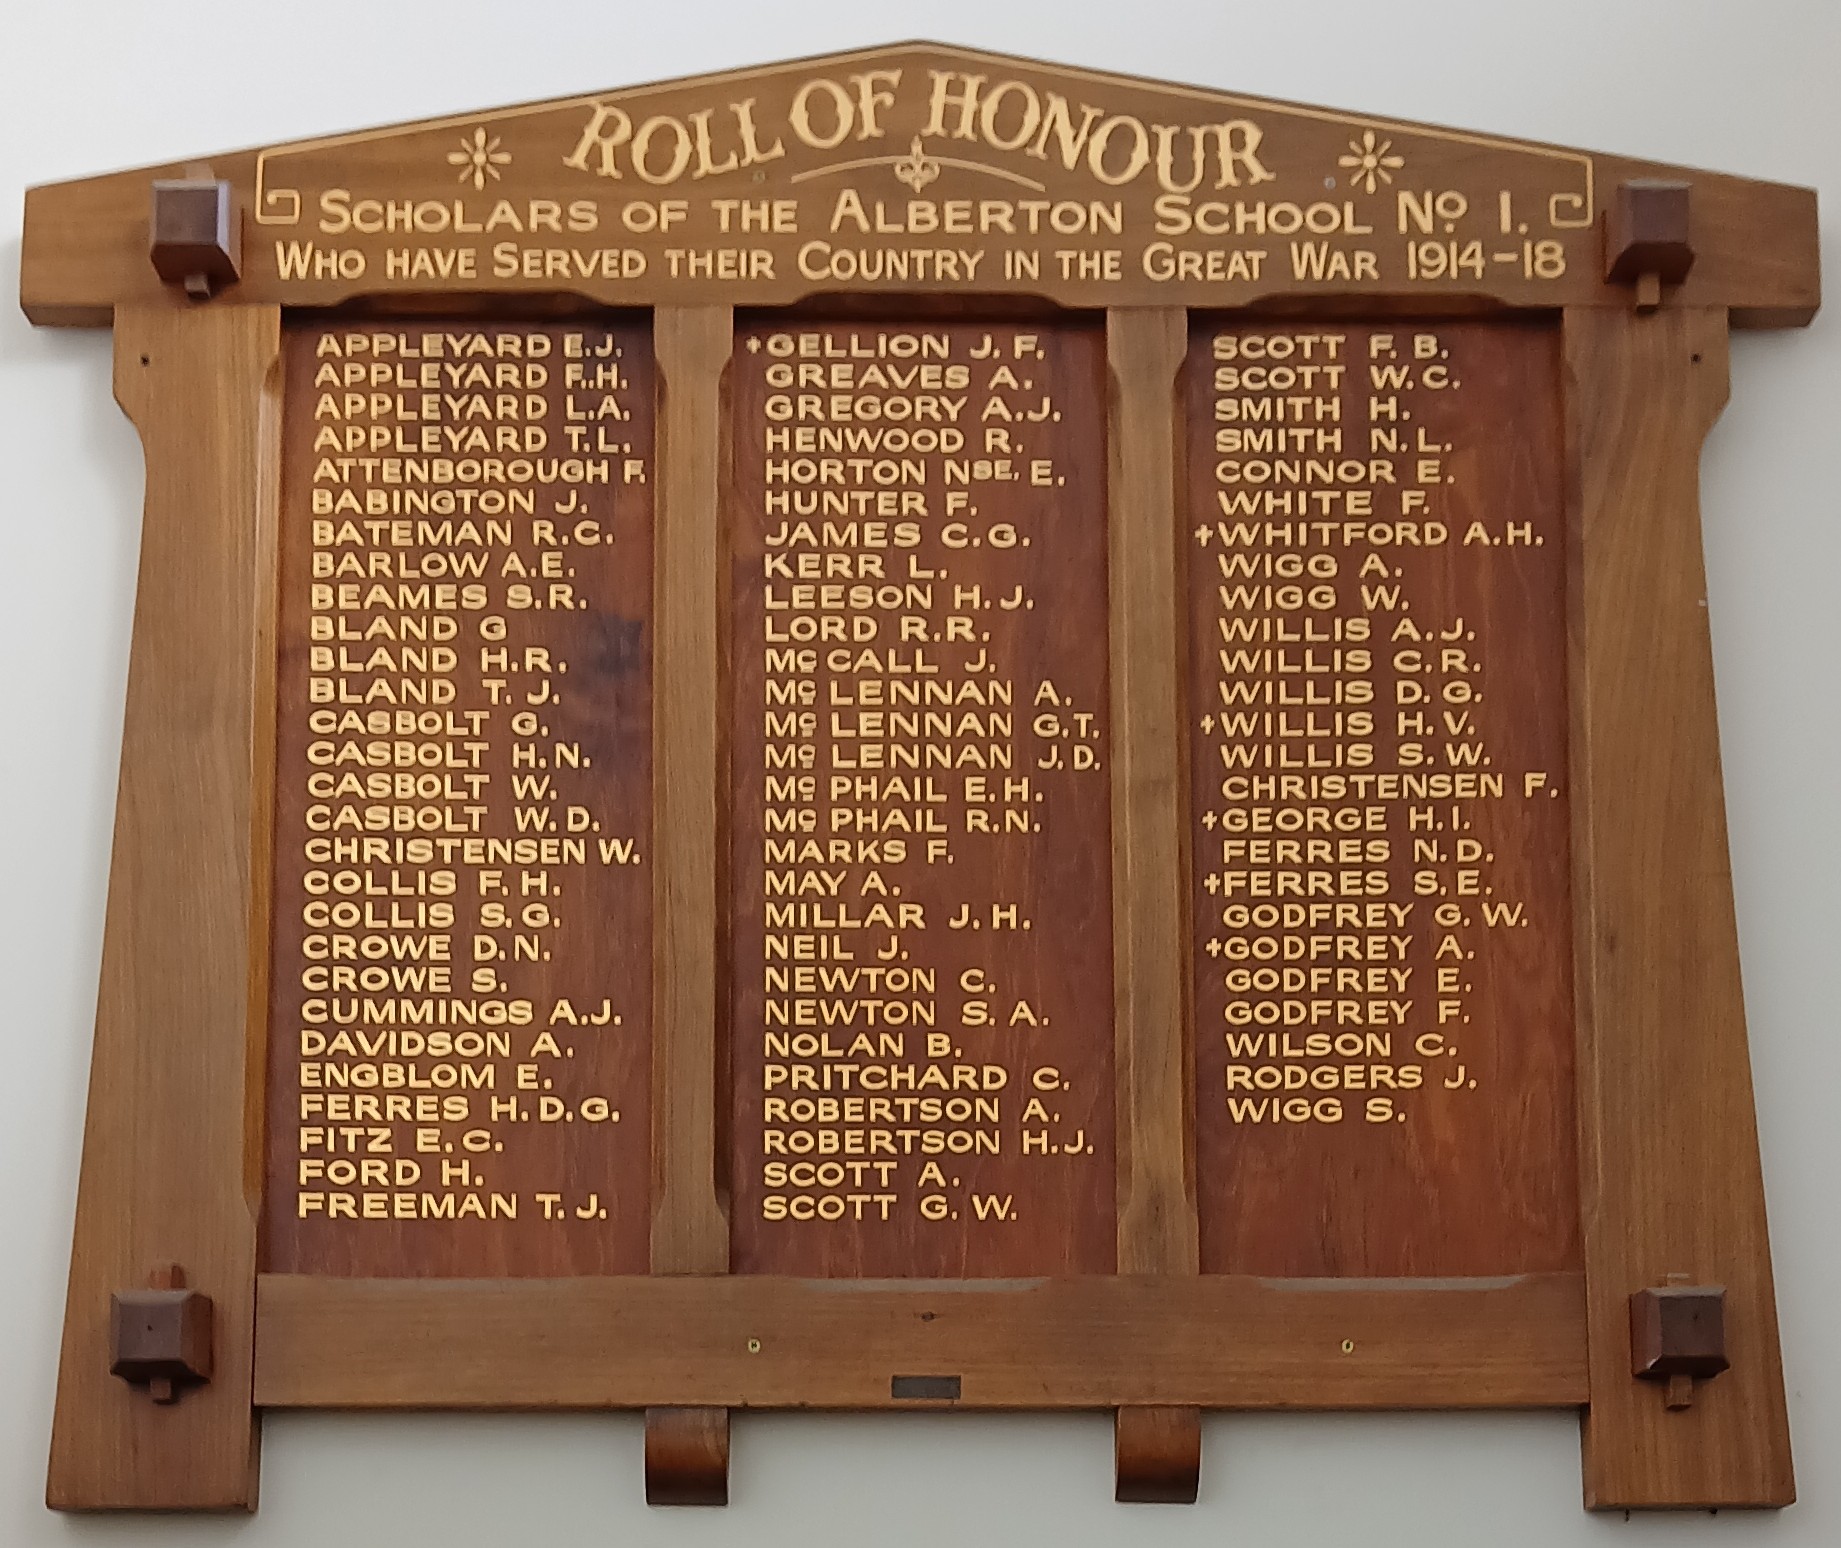 ROLL OF HONOUR
SCHOLARS OF THE ALBERTON SCHOOL No 1.
WHO HAVE SERVED THEIR COUNTRY IN THE GREAT WAR 1914-18
APPLEYARD E.J.
APPLEYARD F.H.
APPLEYARD L.A.
APPLEYARD T.L.
ATTENBOROUGH F.
BABINGTON J.
BATEMAN R.C.
BARLOW A.E.
BEAMES S.R.
BLAND G
BLAND H.R.
BLAND T.J.
CASBOLT G.
CASBOLT H.N.
CASBOLT W.
CASBOLT W.D.
CHRISTENSEN W.
COLLIS F.H.
COLLIS S.G.
CROWE D.N.
CROWE S.
CUMMINGS A.J.
DAVIDSON A.
ENGBLOM E.
FERRES H.D.G.
FITZ E.C.
FORD H.
FREEMAN T.J.
✝GELLION J.F.
GREAVES A.
GREGORY A.J.
HENWOOD R.
HORTON NSE. E.
HUNTER F.
JAMES C.G.
KERR L.
LEESON H.J.
LORD R.R.
Mc CALL J.
Mc LENNAN A.
Mc LENNAN G.T.
Mc LENNAN J.D.
Mc PHAIL E.H.
Mc PHAIL R.N.
MARKS F.
MAY A.
MILLAR J.H.
NEIL J.
NEWTON C.
NEWTON S.A.
NOLAN B.
PRITCHARD C.
ROBERTSON A.
ROBERTSON H.J.
SCOTT A.
SCOTT G.W.
SCOTT F.B.
SCOTT W.C.
SMITH H.
SMITH N.L.
CONNOR E.
WHITE F.
✝WHITFORD A.H.
WIGG A.
WIGG W.
WILLIS A.J.
WILLIS C.R.
WILLIS D.G.
✝WILLIS H.V.
WILLIS S.W.
CHRISTENSEN F.
✝GEORGE H.I.
FERRES N.D.
✝FERRES S.E.
GODFREY G.W.
✝GODFREY A.
GODFREY E.
GODFREY F.
WILSON C.
RODGERS J.
WIGG S.